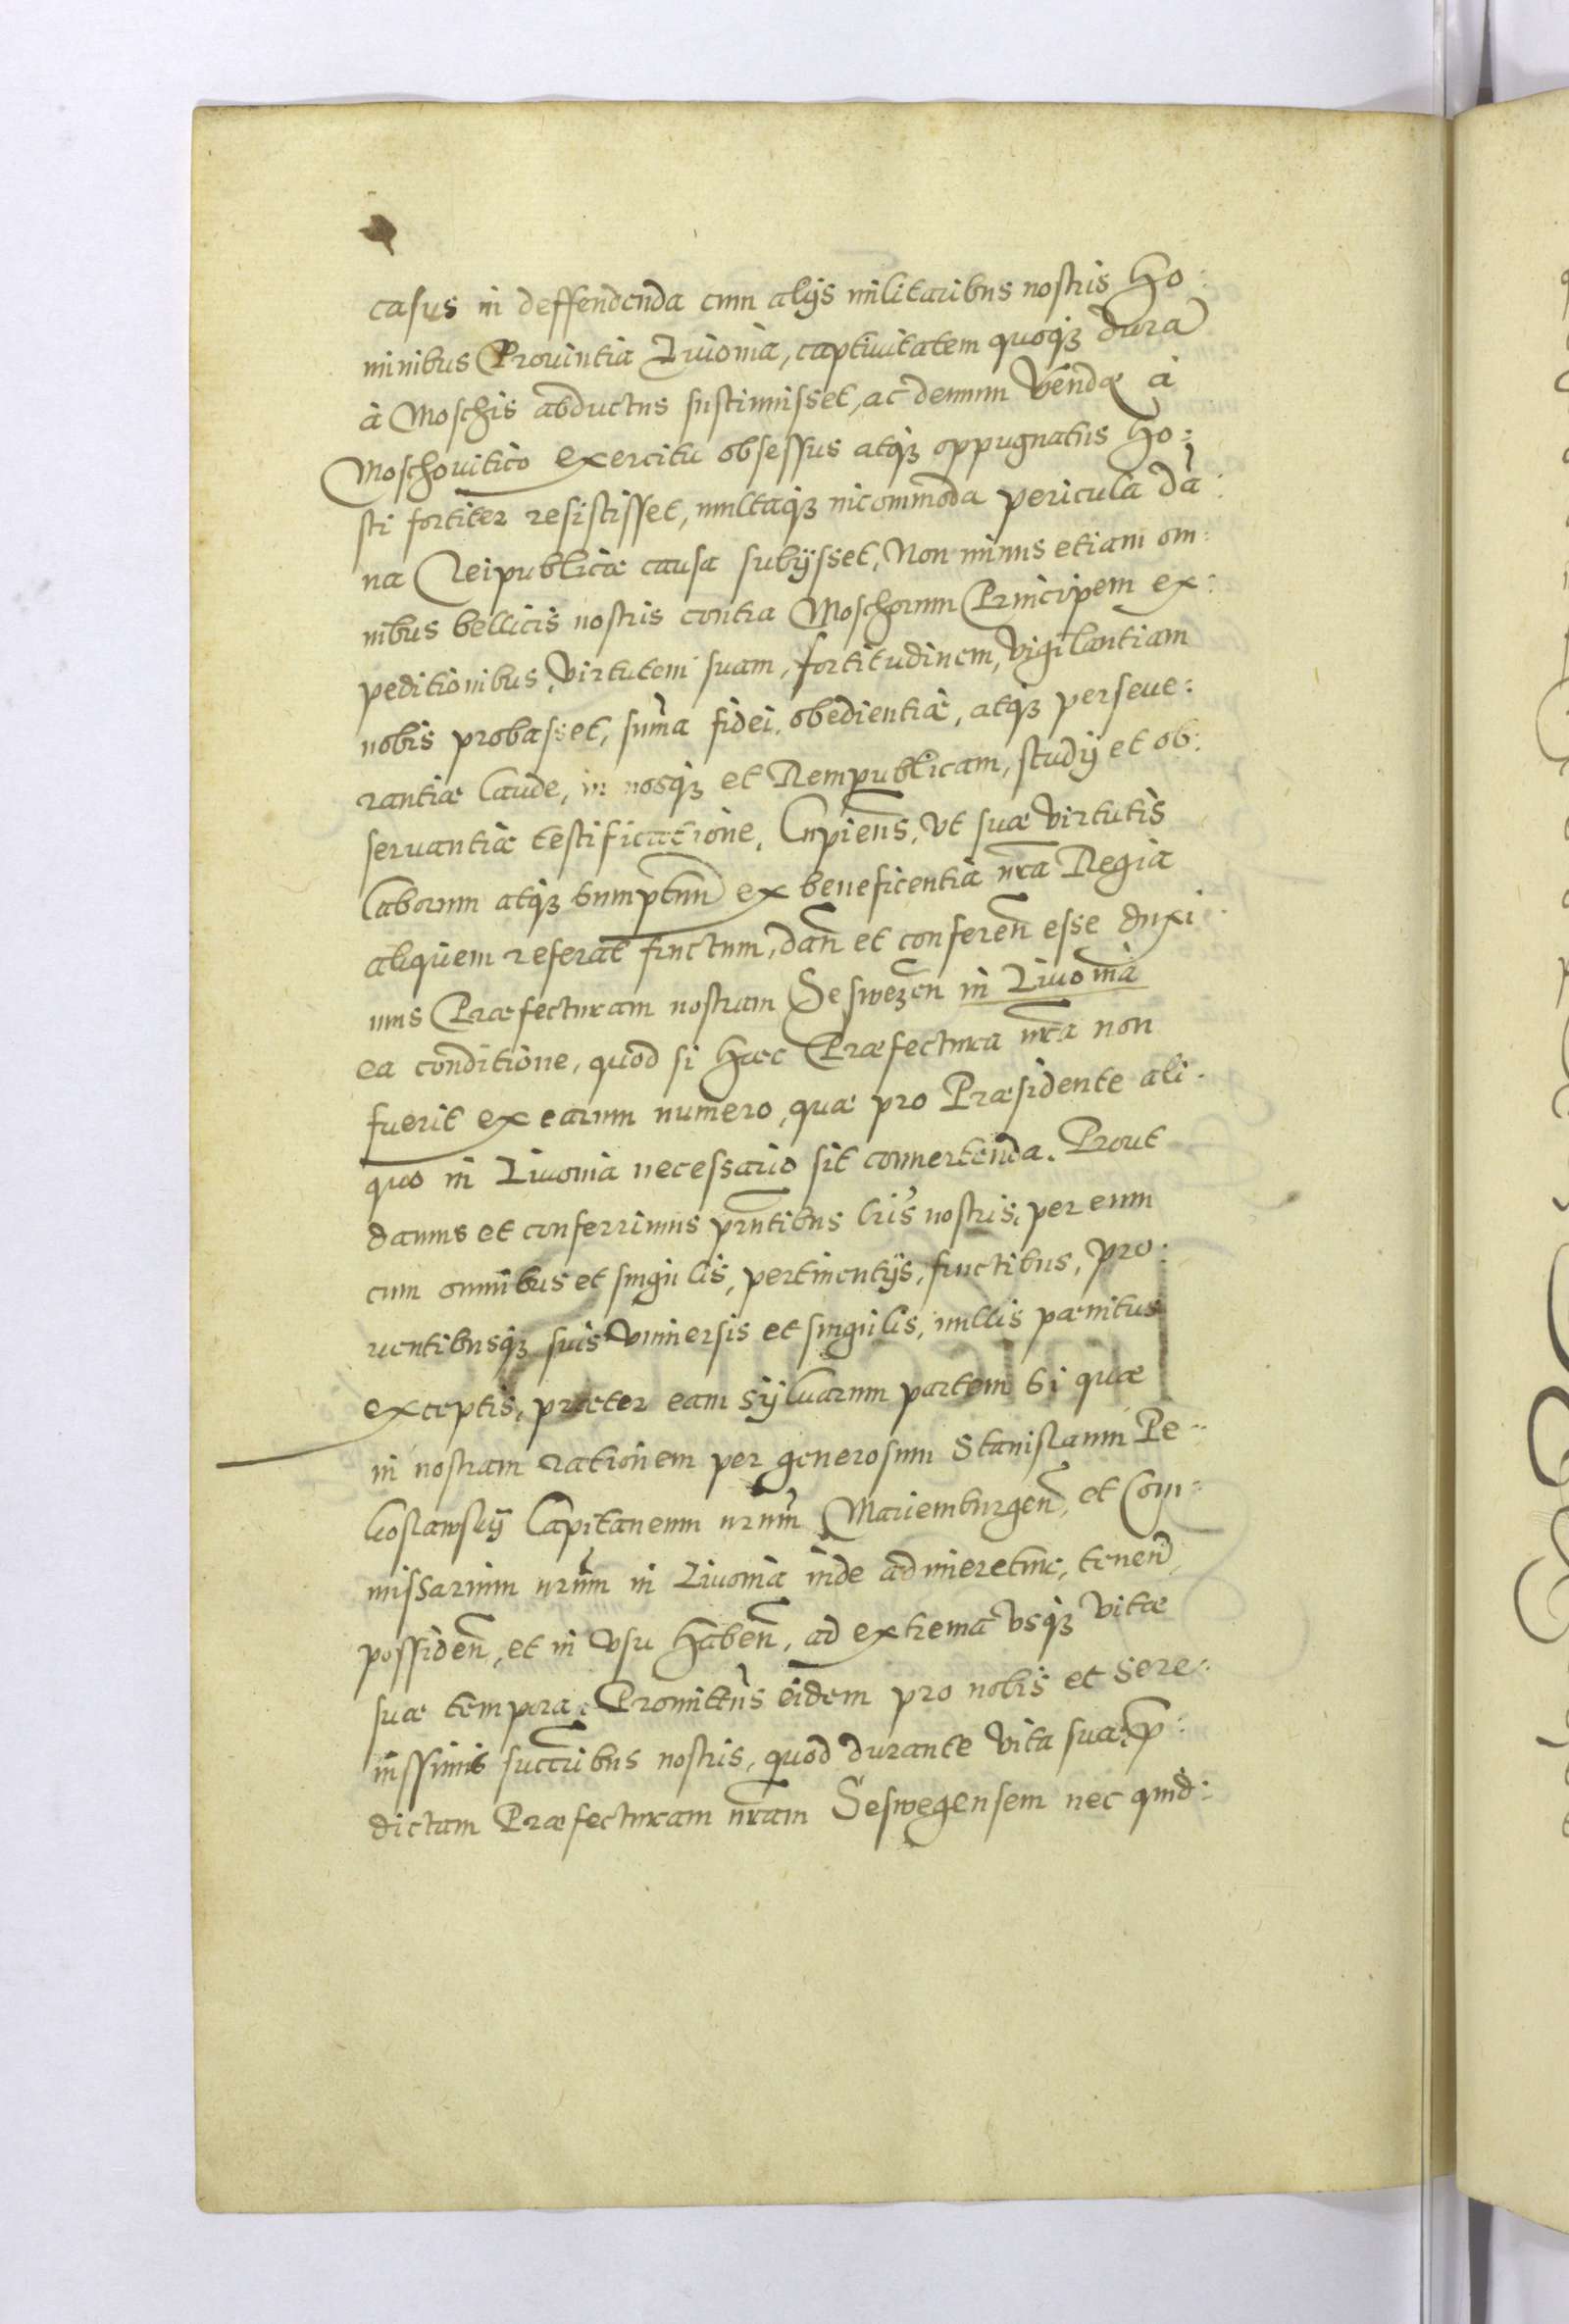 casus in deffendenda cum alijs militaribus nostris Ho:
minibus Prouintia Liuonia, captiuitatem quoqȝ durā
à Moschis abductus sustinuisset, ac demum Vendæ à
Moschouitico exercitu obsessus atqȝ oppugnatus Ho:
sti fortiter resistisset, multaqȝ incommoda pericula dā:
na Reipublicæ causa subijsset, Non minus etiam om:
nibus bellicis nostris contra Moschorum Principem ex:
peditionibus, virtutem suam, fortitudinem, vigilantiam
nobis probasset, sum̄a fidei, obedientiæ, atqȝ perseue:
rantiæ laude, in nosqȝ et Rempublicam, studij et ob:
seruantiæ testificatione, Cupiens, vt suæ virtutis
laborum atqȝ sumptuum ex beneficentia nrā Regia
aliquem referat fructum, dan̄ et conferen̄ esse duxi
mus Præfecturam nostram Seswezen in Liuonia
ea conditione, quod si hæc Præfectura nrā non
fuerit ex earum numero, quæ pro Præsidente ali
quo in Liuonia necessario sit conuertenda. Prout
damus et conferrimus prn̄tibus lr̄is nostris, per eum
cum omnibus et singulis, pertinentijs, fructibus, pro:
uentibusqȝ suis vniuersis et singulis, nullis pænitus
exceptis, præter eam syluarum partem si quæ
in nostram rationem per generosum Stanislaum Pe:
koslawskij Capitaneum nrūm Mariemburgen̄, et Com:
missarium nrūm in Liuonia inde adimeretur, tenen̄,
possiden̄, et in vsu haben̄, ad extrema vsqȝ vitæ
suæ tempora. Promitten̄s eidem pro nobis et Sere:
nissimis succr̄ibus nostris, quod durante vita sua, p̄:
dictam Præfecturam nrām Seswegensem nec quid: